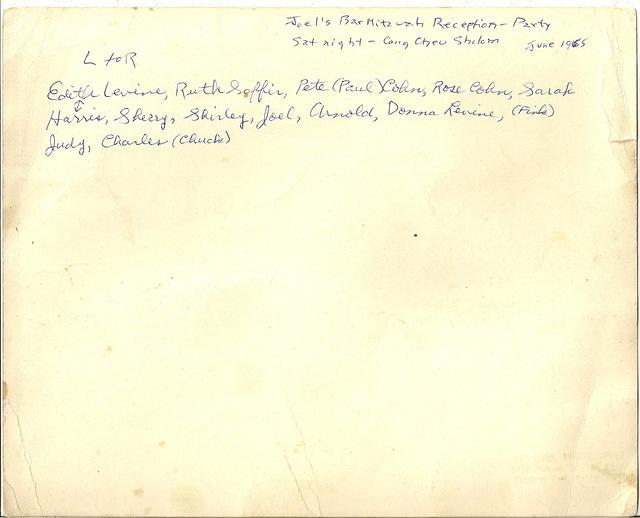 Joel's Bar Mitzvah Reception - Party
Sat night - Cong Chev Sholom June 1965
L to R
Edith Levine, Ruth Soffir, Pete (Paul) Cohn, Rose Cohn, Sarah
Harris, Sherry, Shirley, Joel, Arnold, Donna Levine, (Fink)
Judy, Charles (Chuck)